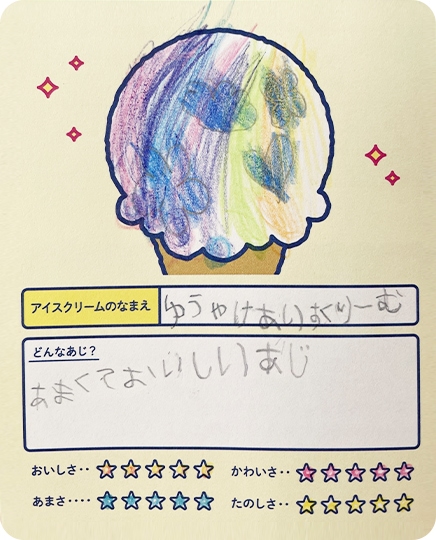 アイスクリームのなまえ
ゆうやけあいすくりーむ
どんなあじ？
あまくておいしいあじ
おいしさ‥
かわいさ‥
あまさ‥‥
たのしさ‥